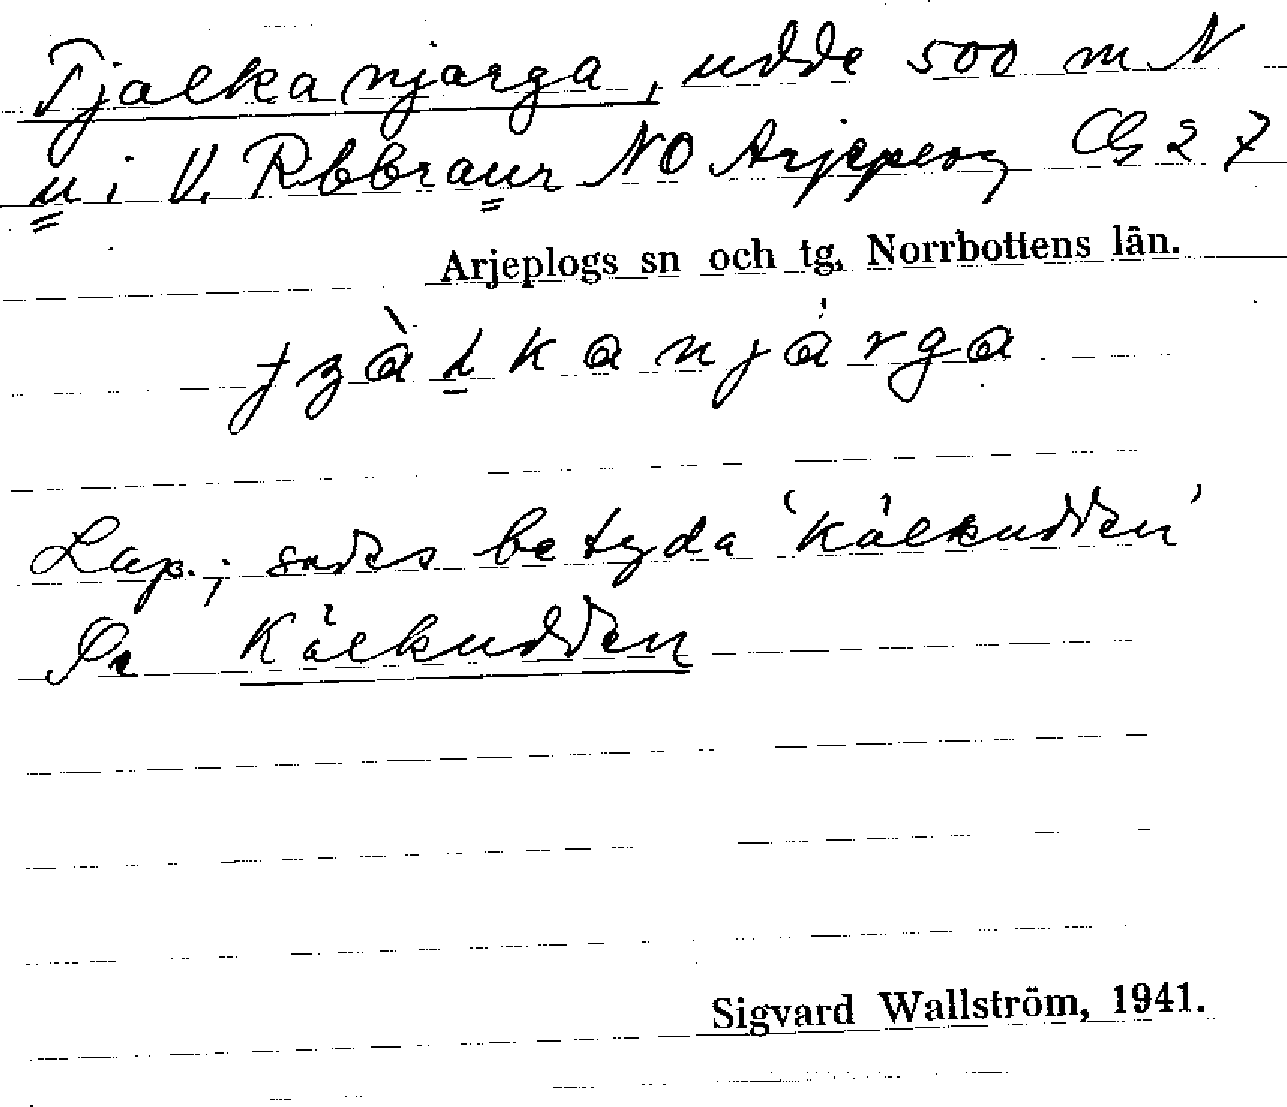 Tjalkanjarga, udde 500 m N
u i V. Rebraur NO Arjeplog Cb 27
Arjeplogs sn och tg, Norrbottens län.
Lap.; sades betyda 'Kälkudden'
Kälkudden
Sigvard Wallström, 1941.